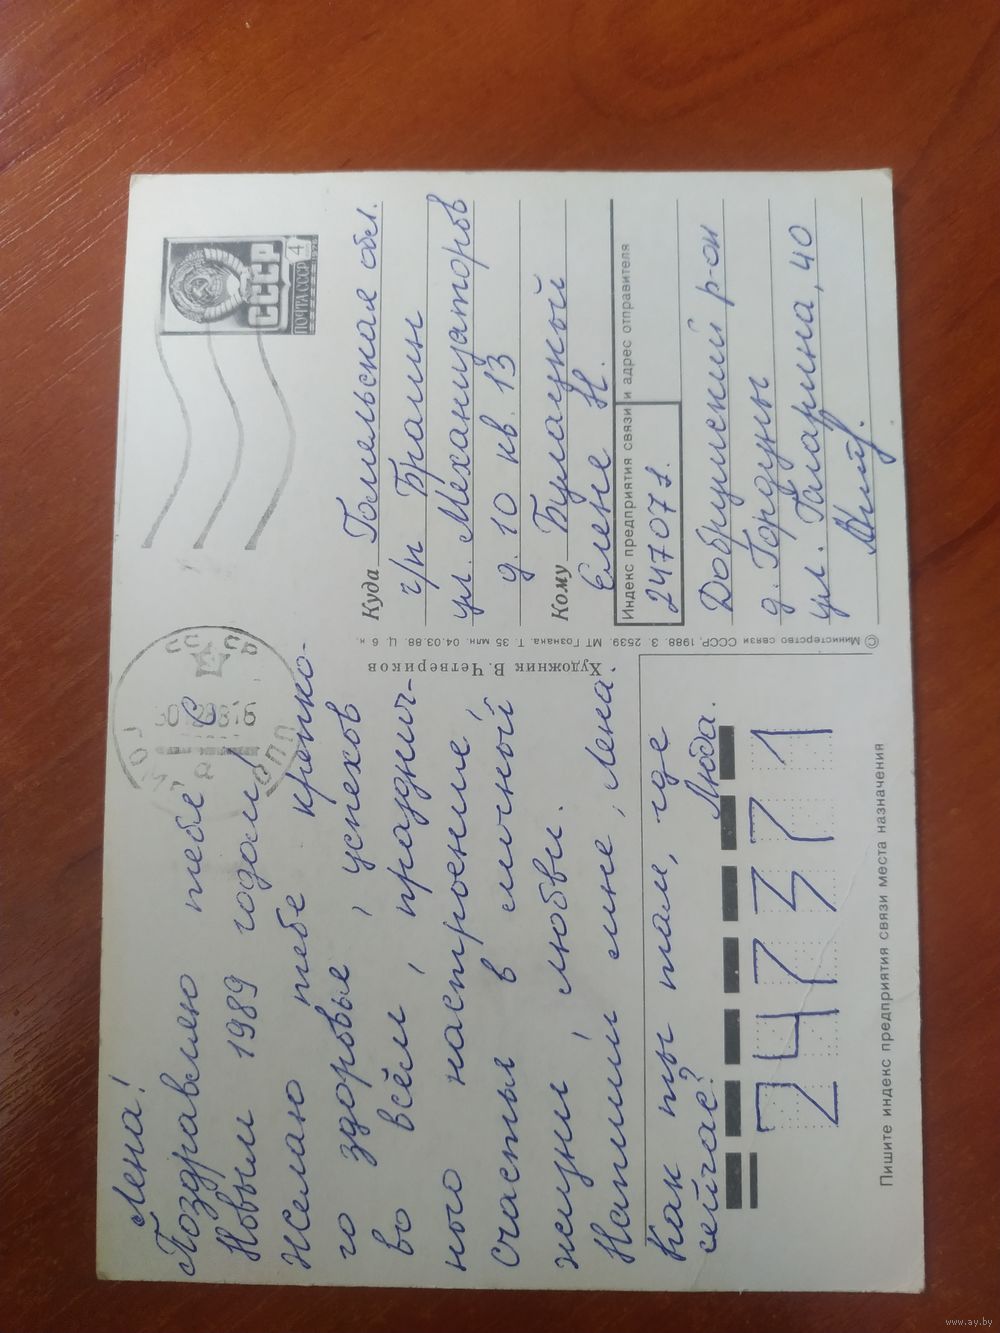 Лена!
Поздравляю тебя с
Новым 1989 годом!
Желаю тебе крепко-
го здоровья, успехов
во всём, празднич-
ного настроения
счастья в личной
жизни, любви.
Напиши мне, Лена.
Как ты там, где
сейчас? Люда.
247371
Пишите индекс предприятия связи места назначения
Художник В. Четвериков
© Министерство связи СССР, 1988. З. 2539. МТ Гознака. Т. 35 млн. 04.03.88. Ц. 6 к.
СССР
ПОЧТА СССР 4
Куда Гомельская обл.
г/п Брагин
ул. Механизаторов
д. 10 кв. 13
Кому Булацкой
Елене Н.
Индекс предприятия связи и адрес отправителя
247071.
Добрушский р-он
д. Гордуны
ул. Гагарина, 40
www.ay.by